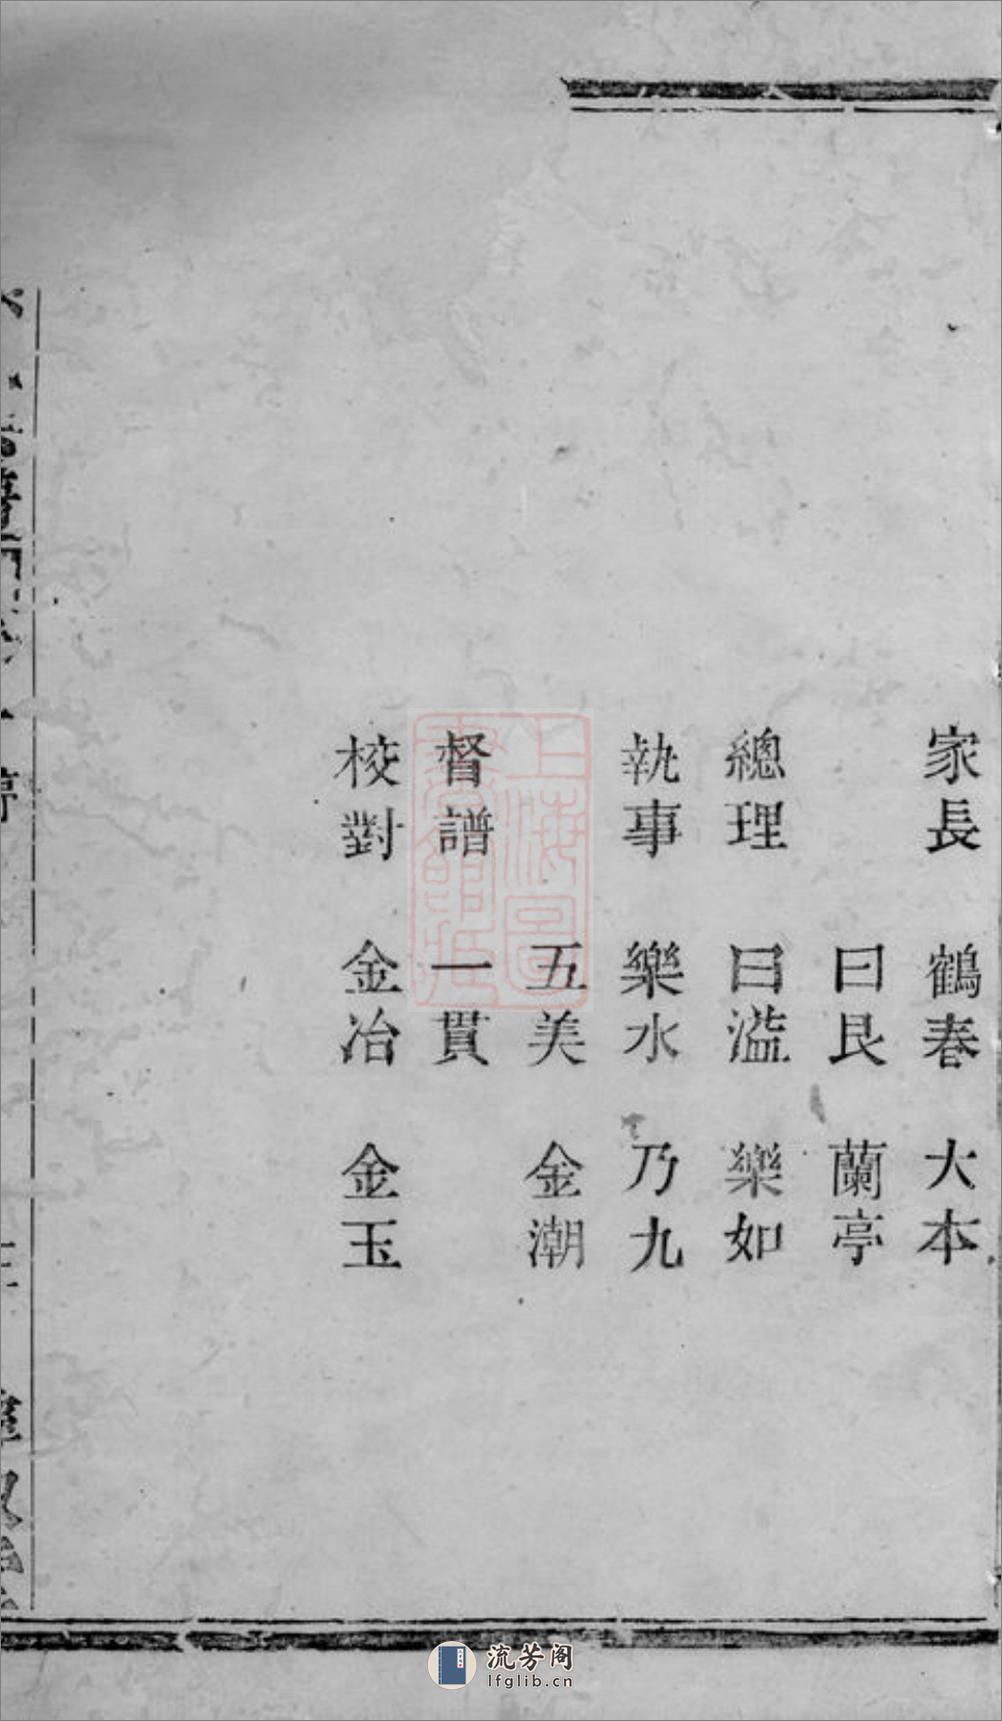 家長 鶴春 大本
曰艮 蘭亭
總理 曰溢 樂如
執事 樂水 乃九
五美 金潮
督譜 一貫
校對 金冶 金玉
上海圖
書館藏
流芳阁
lfglib.cn